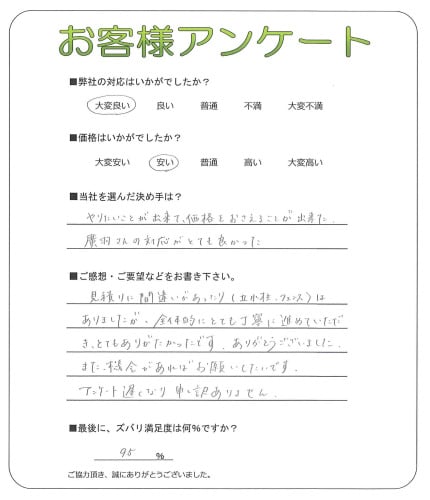 お客様アンケート
■弊社の対応はいかがでしたか？
大変良い 良い 普通 不満 大変不満
■価格はいかがでしたか？
大変安い 安い 普通 高い 大変高い
■当社を選んだ決め手は？
やりたいことが出来て、価格をおさえることが出来た。
廣羽さんの対応がとても良かった
■ご感想・ご要望などをお書き下さい。
見積りに間違いがあったり（立水栓、フェンス）は
ありましたが、全体的にとても丁寧に進めていただ
き、とてもありがたかったです。ありがとうございました。
また、機会があればお願いしたいです。
アンケート遅くなり申し訳ありません。
■最後に、ズバリ満足度は何％ですか？
95 ％
ご協力頂き、誠にありがとうございました。